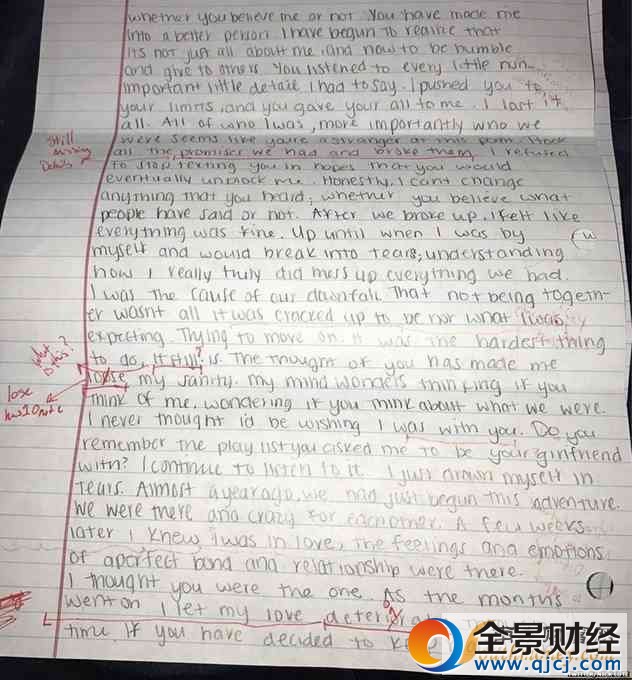 whether you believe me or not. You have made me
into a better person. I have begun to realize that
its not just all about me, and how to be humble
and give to others. You listened to every little nun-
important little detail I had to say. I pushed you to
your limits, and you gave your all to me. I lost it
all. All of who I was, more importantly who we
were seems like you're a stranger at this point. I took
Still
missing
Details?
all the promises we had and broke them. I refused
to stop texting you in hopes that you would
eventually unblock me. Honestly, I cant change
anything that you heard, whether you believe what
people have said or not. After we broke up, I felt like
everything was fine. Up until when I was by
myself and would break into tears, understanding
how I really truly did mess up everything we had.
I was the cause of our downfall. That not being togeth-
er wasnt all it was cracked up to be nor what I was
expecting. Trying to move on. It was the hardest thing
to do, it still is. The thought of you has made me
what
is this?
lose
has 1 O not 2
loose my sanity. my mind wonders thinking if you
think of me, wondering if you think about what we were.
I never thought id be wishing I was with you. Do you
remember the play list you asked me to be your girlfriend
with? I continue to listen to it. I just drown myself in
tears. Almost a year ago, we had just begun this adventure.
We were there and crazy for eachother. A few weeks
later I knew i was in love, the feelings and emotions
of a perfect bond and relationship were there.
I thought you were the one. As the months
went on I let my love
time. If you have decided to
全景财经
www.qjcj.com